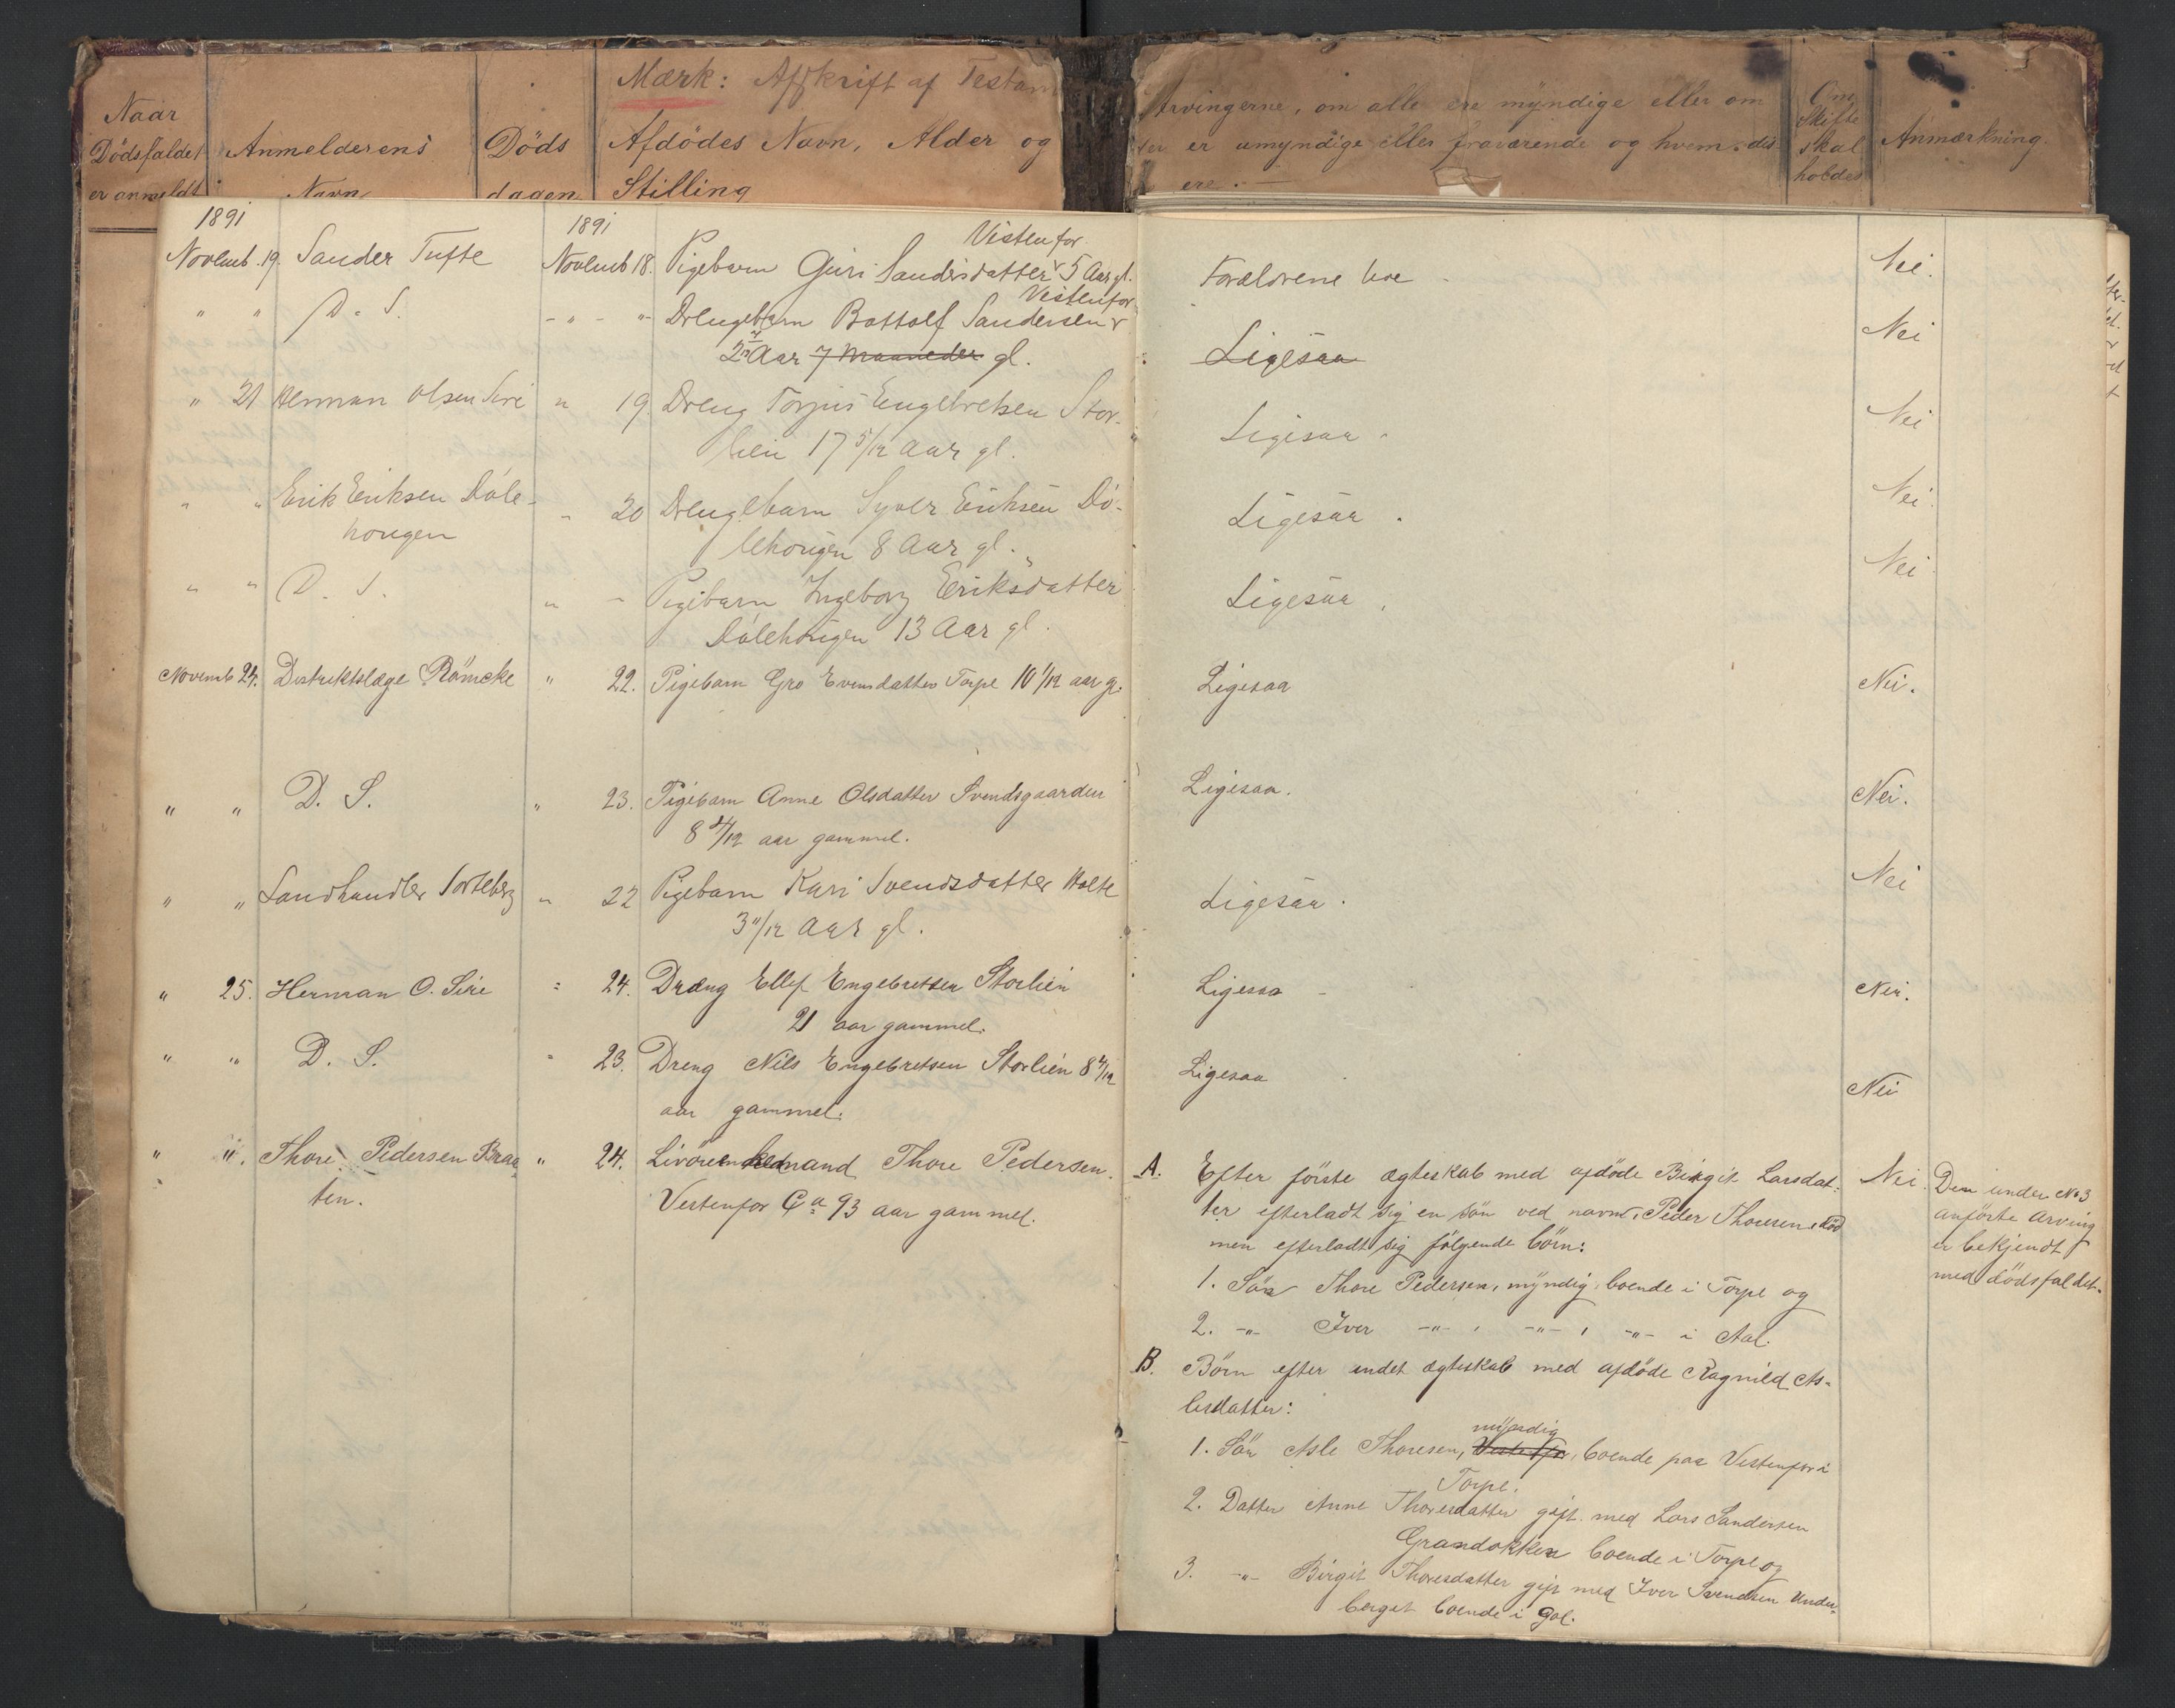 Mærk: Afskrift af Testam
Naar
Dödsfaldet
er anmeldt
Anmelderens
Navn
Döds
dagen
Afdödes Navn, Alder og
Stilling
Arvingerne, om alle ere myndige eller om
er umyndige eller fraværende og hvem dis-
ere.
Om
Skifte
skal
holdes
Anmærkning.
1891 1891
Vestenfor
Novemb. 19. Sander Tufte Novemb 18. Pigebarn Guri Sandersdatter 5 Aar gl. Forældrene leve Nei.
Vestenfor
" " D. S. - " - " - Drengebarn Bottolf Sandersen Ligesaa Nei
2 7/12 Aar 7 Maaneder gl.
" 21 Herman Olsen Sire " 19. Dreng Torjus Engebretsen Stor- Ligesaa Nei
lien 17 5/12 Aar gl.
" " Erik Eriksen Döle- " 20 Drengebarn Syver Eriksen Dö- Ligesaa. Nei
hougen
lehougen 8 Aar gl.
" " D. S. " - Pigebarn Ingeborg Eriksdatter Ligesaa Nei
Dölehougen 13 Aar gl.
Novemb 24. Distriktslæge Römcke " 22. Pigebarn Gro Evensdatter Torpe 10 1/12 aar g. Ligesaa Nei.
" " D. S. " 23. Pigebarn Anne Olsdatter Svendsgaarden Ligesaa. Nei.
8 4/12 aar gammel.
" " Landhandler Sorteberg " 22 Pigebarn Kari Svendsdatter Holte Ligesaa. Nei
3 11/12 Aar gl.
" 25. Herman O. Sire " 24. Dræng Ellef Engebretsen Storlien Ligesaa - Nei.
21 aar gammel.
" " D. S. " 23. Dreng Nils Engebretsen Storlien 8 4/12 Ligesaa Nei
aar gammel.
" ". Thore Pedersen Braa " 24. Livören kemand Thore Pedersen.
ten.
Vestenfor Ca 93 aar gammel.
A. Efter förste ægteskab med afdöde Birgit Larsdat- Nei.
ter efterladt sig en sön ved navn Peder Thoresen död
men efterladt sig fölgende börn:
1. Sön Thore Pedersen, myndig, boende i Torpe og
2. -"- Iver -"- , -"- , -"- i Aal.
B. Börn efter endet ægteskab med afdöde Ragnild As-
lesdatter:
myndig
1. Sön Asle Thoresen, Vestenfor, boende paa Vestenfor i
Torpe.
2. Datter Anne Thoresdatter gift med Lars Sandersen
Grandokken boende i Torpe og
3. -"- Birgit Thoresdatter gift med Iver Svendsen Under-
berget boende i Gol.
Den under No 3
anförte Arving
er bekjendt
med dödsfaldet.